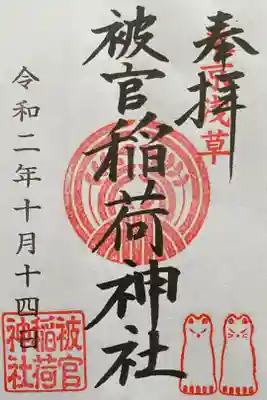 奉拝
浅草
被官稲荷神社
令和二年十月十四日
被官
稲荷
神社